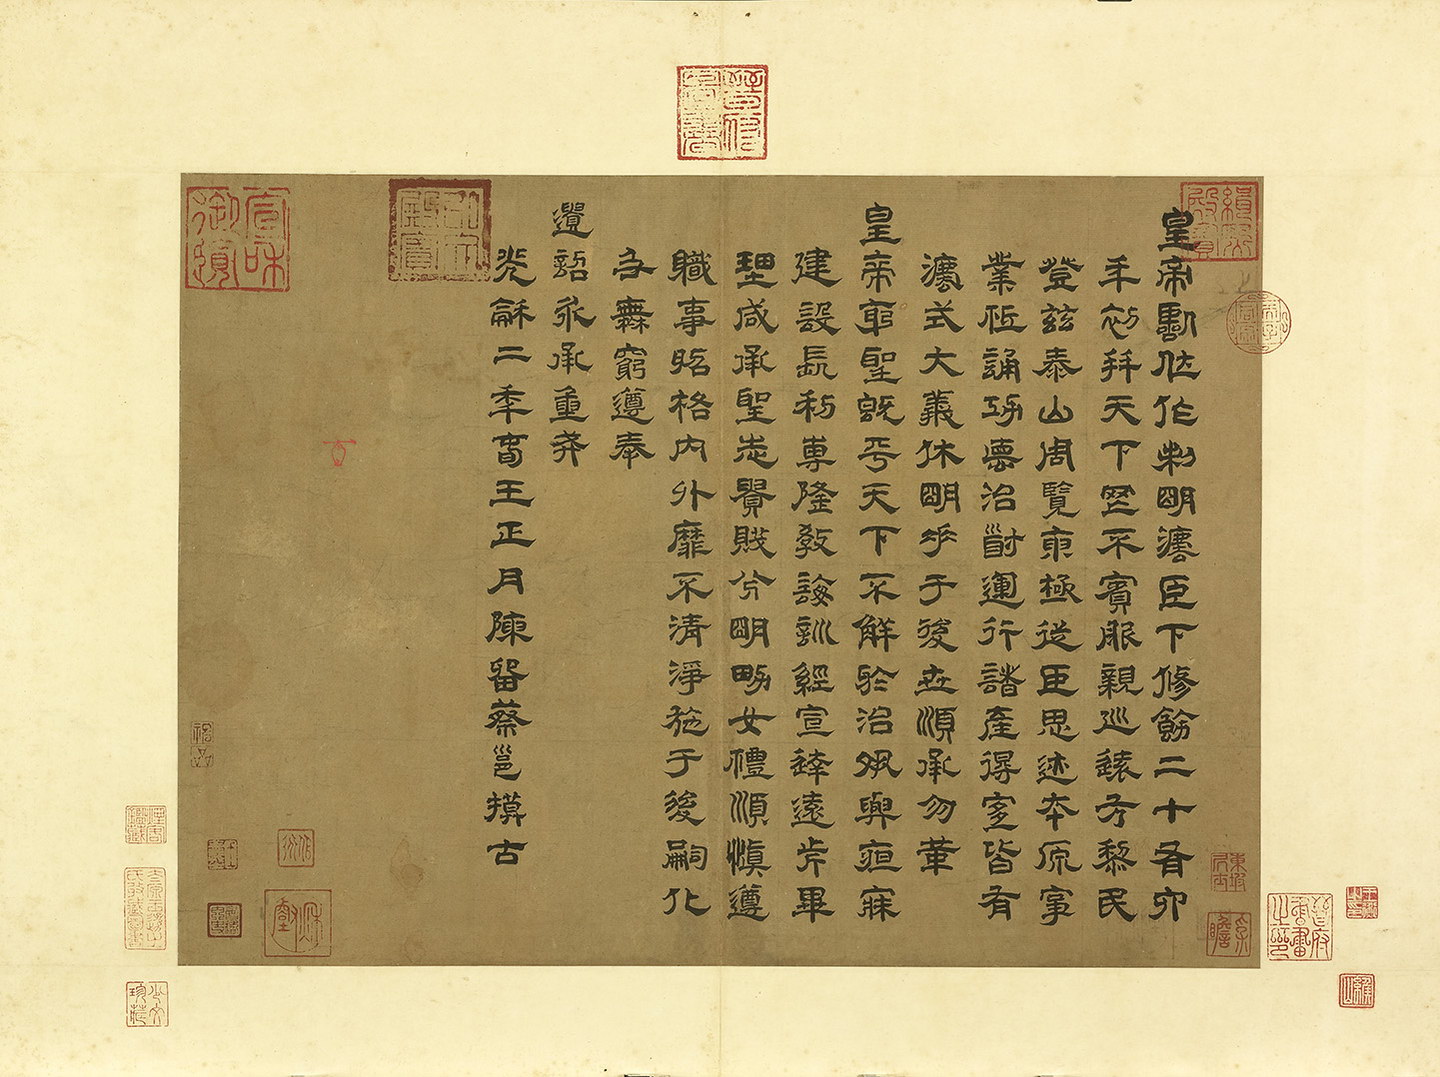 皇帝臨位作制明灋臣下修飭二十有六
年初并天下罔不賓服親巡遠方黎民
登茲泰山周覽東極從臣思迹本原事
業祗誦功德治道運行諸產得宜皆有
灋式大義休明垂于後世順承勿革
皇帝躬聖既平天下不解於治夙興夜寐
建設長利專隆教誨訓經宣達遠近畢
理咸承聖志貴賤分明男女禮順慎遵
職事昭格內外靡不清淨施于後嗣化
及無窮遵奉
遺詔永承重戒
光龢二年春王正月陳留蔡邕摸古
緝熙殿寶
晉府書畫之印